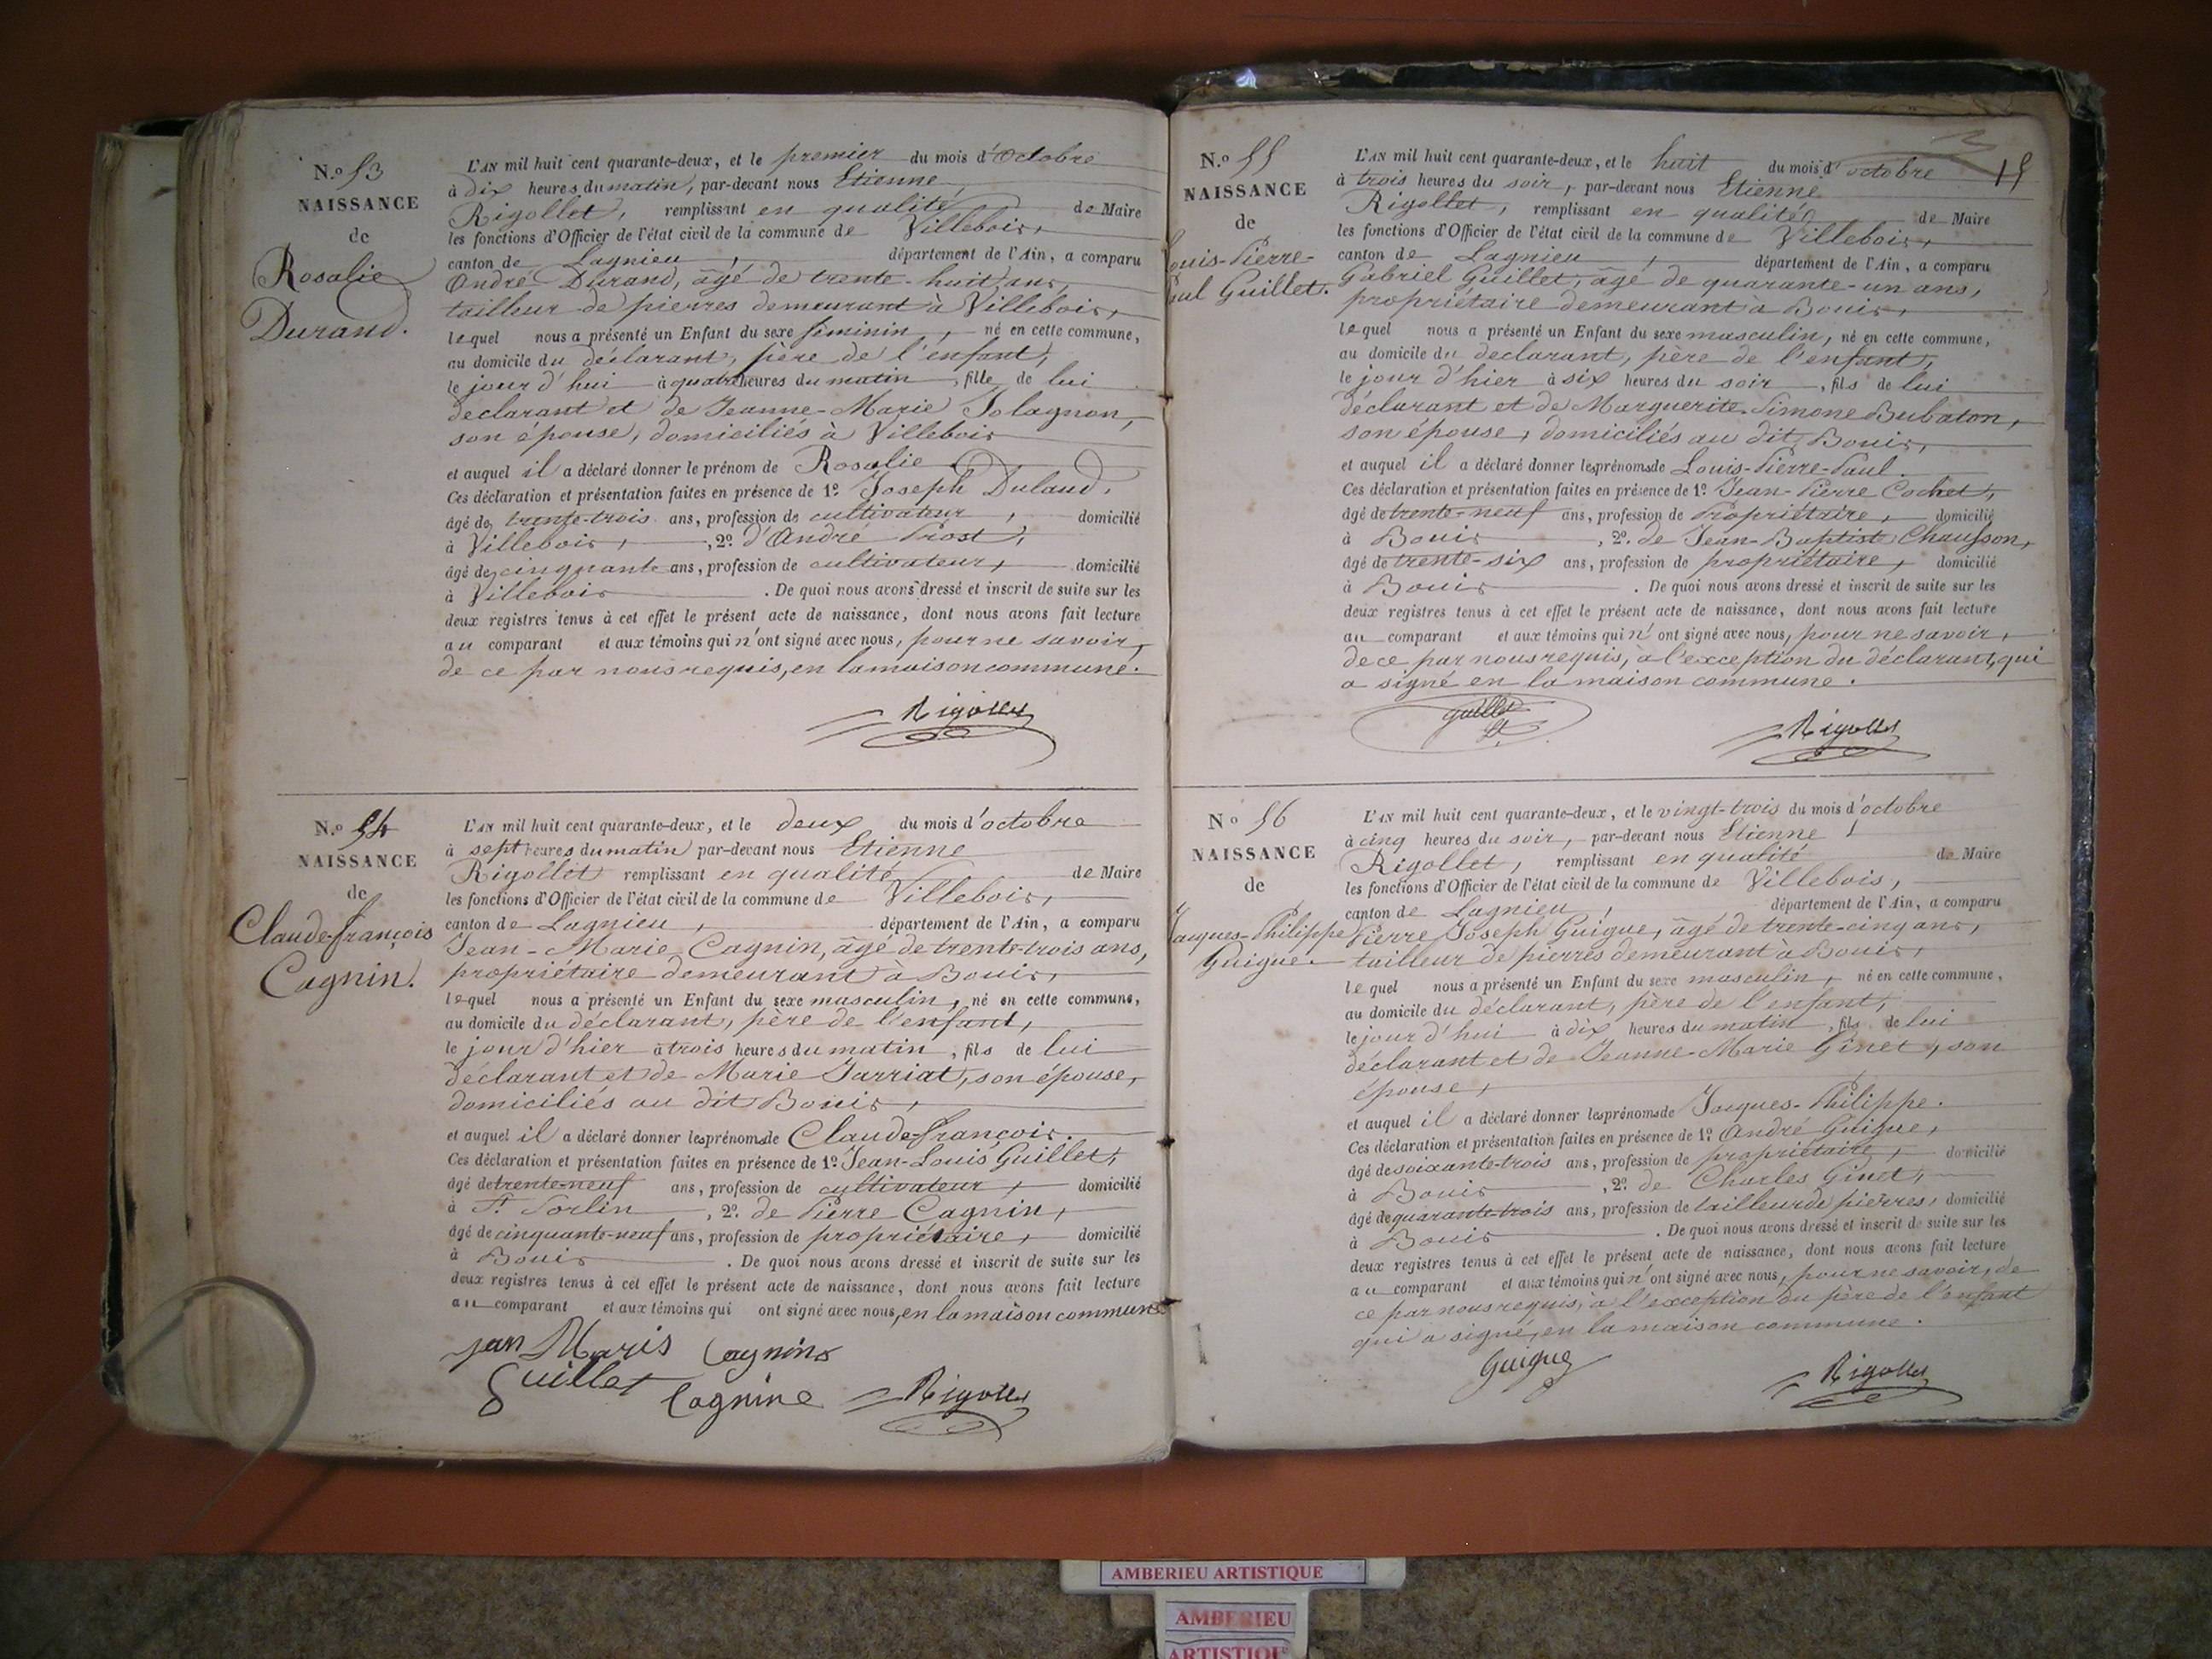 N.o 53
NAISSANCE
de
Rosalie
Durand.
L'AN mil huit cent quarante-deux, et le premier du mois d'octobre
à dix heures du matin, par-devant nous Etienne
Rigollet, remplissant en qualité de Maire
les fonctions d'Officier de l'état civil de la commune de Villebois,
canton de Lagnieu, département de l'Ain, a comparu
André Durand, âgé de trente-huit ans,
tailleur de pierres demeurant à Villebois,
lequel nous a présenté un Enfant du sexe féminin, né en cette commune,
au domicile du déclarant, père de l'enfant,
le jour d'hui à quatre heures du matin, fille de lui
déclarant et de Jeanne-Marie Solagnon,
son épouse, domiciliés à Villebois
et auquel il a déclaré donner le prénom de Rosalie.
Ces déclaration et présentation faites en présence de 1o Joseph Dulaud,
âgé de trente-trois ans, profession de cultivateur, domicilié
à Villebois, 2o d'André Prost,
âgé de cinquante ans, profession de cultivateur, domicilié
à Villebois. De quoi nous avons dressé et inscrit de suite sur les
deux registres tenus à cet effet le présent acte de naissance, dont nous avons fait lecture
au comparant et aux témoins qui n'ont signé avec nous, pour ne savoir,
de ce par nous requis, en la maison commune.
Rigollet
N.o 54
NAISSANCE
de
Claude-françois
Cagnin.
L'AN mil huit cent quarante-deux, et le deux du mois d'octobre
à sept heures du matin par-devant nous Etienne
Rigollet remplissant en qualité de Maire
les fonctions d'Officier de l'état civil de la commune de Villebois,
canton de Lagnieu, département de l'Ain, a comparu
Jean-Marie Cagnin, âgé de trente-trois ans,
propriétaire demeurant à Bouis,
lequel nous a présenté un Enfant du sexe masculin, né en cette commune,
au domicile du déclarant, père de l'enfant,
le jour d'hier à trois heures du matin, fils de lui
déclarant et de Marie Jarriat, son épouse,
domiciliés au dit Bouis,
et auquel il a déclaré donner les prénoms de Claude-françois.
Ces déclaration et présentation faites en présence de 1o Jean-Louis Guillet,
âgé de trente-neuf ans, profession de cultivateur, domicilié
à St. Sorlin, 2o. de Pierre Cagnin,
âgé de cinquante-neuf ans, profession de propriétaire, domicilié
à Bouis. De quoi nous avons dressé et inscrit de suite sur les
deux registres tenus à cet effet le présent acte de naissance, dont nous avons fait lecture
au comparant et aux témoins qui ont signé avec nous, en la maison commune
jean Maris Cagnine
Guillet Cagnine Rigollet
15
N.o 55
NAISSANCE
de
Louis-Pierre-
Paul Guillet.
L'AN mil huit cent quarante-deux, et le huit du mois d'octobre
à trois heures du soir, par-devant nous Etienne
Rigollet, remplissant en qualité de Maire
les fonctions d'Officier de l'état civil de la commune de Villebois,
canton de Lagnieu, département de l'Ain, a comparu
Gabriel Guillet, âgé de quarante-un ans,
propriétaire demeurant à Bouis,
lequel nous a présenté un Enfant du sexe masculin, né en cette commune,
au domicile du declarant, père de l'enfant,
le jour d'hier à six heures du soir, fils de lui
déclarant et de Marguerite-Simone Bubaton,
son épouse, domiciliés au dit Bouis,
et auquel il a déclaré donner les prénoms de Louis-Pierre-Paul.
Ces déclaration et présentation faites en présence de 1o Jean-Pierre Cochet,
âgé de trente-neuf ans, profession de Propriétaire, domicilié
à Bouis, 2o. de Jean-Baptiste Chausson,
âgé de trente-six ans, profession de propriétaire, domicilié
à Bouis. De quoi nous avons dressé et inscrit de suite sur les
deux registres tenus à cet effet le présent acte de naissance, dont nous avons fait lecture
au comparant et aux témoins qui n'ont signé avec nous, pour ne savoir,
de ce par nous requis, à l'exception du déclarant, qui
a signé en la maison commune.
guillet Rigollet
No 56
NAISSANCE
de
Jacques-Philippe
Guigue.
L'AN mil huit cent quarante-deux, et le vingt-trois du mois d'octobre
à cinq heures du soir, par-devant nous Etienne
Rigollet, remplissant en qualité de Maire
les fonctions d'Officier de l'état civil de la commune de Villebois,
canton de Lagnieu, département de l'Ain, a comparu
Pierre Joseph Guigue, âgé de trente-cinq ans,
tailleur de pierres demeurant à Bouis,
lequel nous a présenté un Enfant du sexe masculin, né en cette commune,
au domicile du déclarant, père de l'enfant,
le jour d'hui à dix heures du matin, fils de lui
déclarant et de Jeanne-Marie Ginet, son
épouse,
et auquel il a déclaré donner les prénoms de Jacques-Philippe.
Ces déclaration et présentation faites en présence de 1o André Guigue,
âgé de soixante-trois ans, profession de propriétaire, domicilié
à Bouis, 2o. de Charles Ginet,
âgé de quarante-trois ans, profession de tailleur de pierres, domicilié
à Bouis. De quoi nous avons dressé et inscrit de suite sur les
deux registres tenus à cet effet le présent acte de naissance, dont nous avons fait lecture
au comparant et aux témoins qui n'ont signé avec nous, pour ne savoir, de
ce par nous requis, à l'exception du père de l'enfant
qui a signé, en la maison commune.
Guigue Rigollet
AMBERIEU ARTISTIQUE
AMBERIEU
ARTISTIQUE